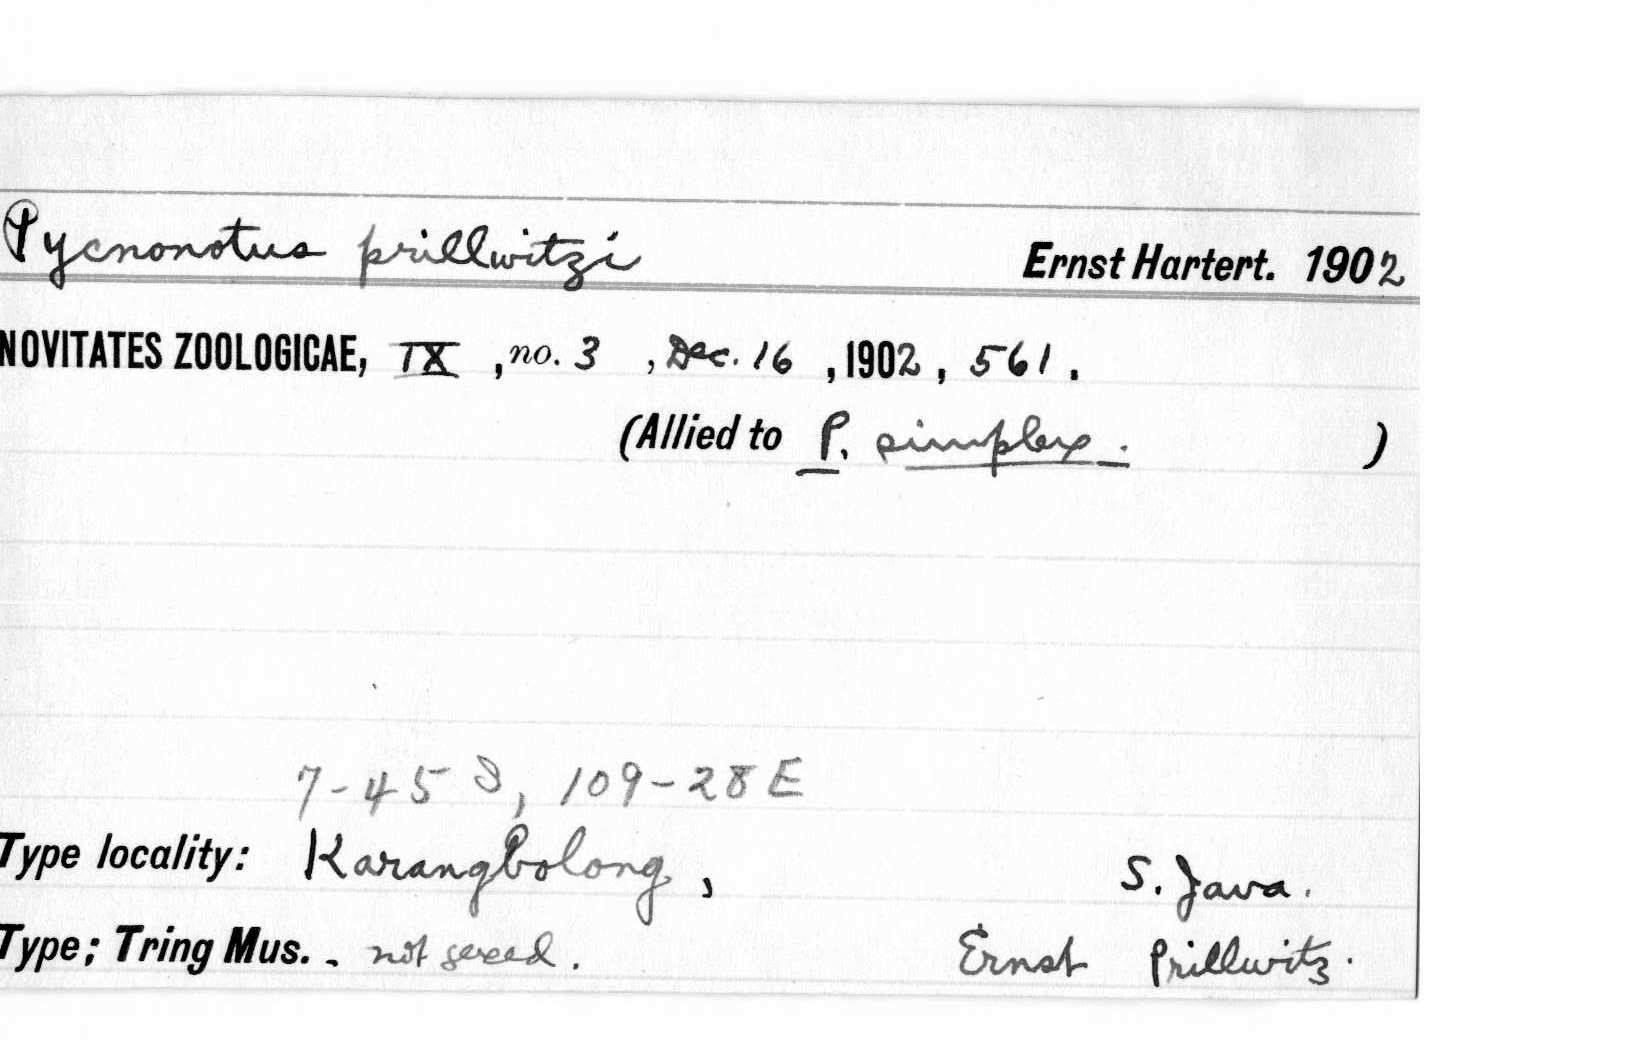 Pycnonotus prillwitzi Ernst Hartert. 1902
NOVITATES ZOOLOGICAE, IX, no. 3, Dec. 16, 1902, 561.
(Allied to P. simplex. )
7-45 S, 109-28 E
Type locality: Karangbolong, S. Java.
Type; Tring Mus. - not sexed. Ernst Prillwitz.